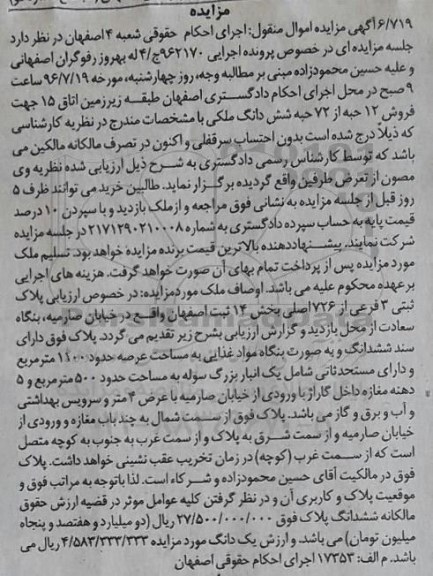 مزایده
۶/۷۱۹آگهی مزایده اموال منقول: اجرای احکام حقوقی شعبه ۴ اصفهان در نظر دارد
جلسه مزایده ای در خصوص پرونده اجرایی ۹۶۲۱۷۰ج/۴ له بهروز رفوگران اصفهانی
و علیه حسین محمودزاده مبنی بر مطالبه وجه، روز چهارشنبه، مورخه ۹۶/۷/۱۹ ساعت
۹ صبح در محل اجرای احکام دادگستری اصفهان طبقه زیرزمین اتاق ۱۵ جهت
فروش ۱۲ حبه از ۷۲ حبه شش دانگ ملکی با مشخصات مندرج در نظریه کارشناسی
که ذیلا درج شده است بدون احتساب سرقفلی و اکنون در تصرف مالکانه مالکین می
باشد که توسط کارشناس رسمی دادگستری به شرح ذیل ارزیابی شده نظریه وی
مصون از تعرض طرفین واقع گردیده برگزار نماید. طالبین خرید می توانند ظرف ۵
روز قبل از جلسه مزایده به نشانی فوق مراجعه و از ملک بازدید و با سپردن ۱۰درصد
قیمت پایه به حساب سپرده دادگستری به شماره ۲۱۷۱۲۹۰۲۱۰۰۰۸ در جلسه مزایده
شرکت نمایند. پیشنهاددهنده بالاترین قیمت برنده مزایده خواهد بود. تسلیم ملک
مورد مزایده پس از پرداخت تمام بهای آن صورت خواهد گرفت. هزینه های اجرایی
برعهده محکوم علیه می باشد. اوصاف ملک موردمزایده: در خصوص ارزیابی پلاک
ثبتی ۳ فرعی از ۷۲۶اصلی بخش ۱۴ ثبت اصفهان واقع در خیابان صارمیه، بنگاه
سعادت از محل بازدید و گزارش ارزیابی بشرح زیر تقدیم می گردد. پلاک فوق دارای
سند ششدانگ و به صورت بنگاه مواد غذایی به مساحت عرصه حدود ۱۱۰۰ مترمربع
و دارای مستحدثاتی شامل یک انبار بزرگ سوله به مساحت حدود ۵۰۰ مترمربع و ۵
دهنه مغازه داخل گاراژ با ورودی از خیابان صارمیه با عرض ۴ متر و سرویس بهداشتی
و آب و برق و گاز می باشد. پلاک فوق از سمت شمال به چند باب مغازه و ورودی از
خیابان صارمیه و از سمت شرق به پلاک و از سمت غرب به جنوب به کوچه متصل
است که از سمت غرب (کوچه) در زمان تخریب عقب نشینی خواهد داشت. پلاک
فوق در مالکیت آقای حسین محمودزاده و شرکاء است. لذا باتوجه به مراتب فوق و
موقعیت پلاک و کاربری آن و در نظر گرفتن کلیه عوامل موثر در قضیه ارزش حقوق
مالکانه ششدانگ پلاک فوق ۲۷/۵۰۰/۰۰۰/۰۰۰ ریال (دو میلیارد و هفتصد و پنجاه
میلیون تومان) می باشد. و ارزش یک دانگ مورد مزایده ۴/۵۸۳/۳۳۳/۳۳۳ ریال می
باشد. م الف: ۱۷۳۵۳ اجرای احکام حقوقی اصفهان